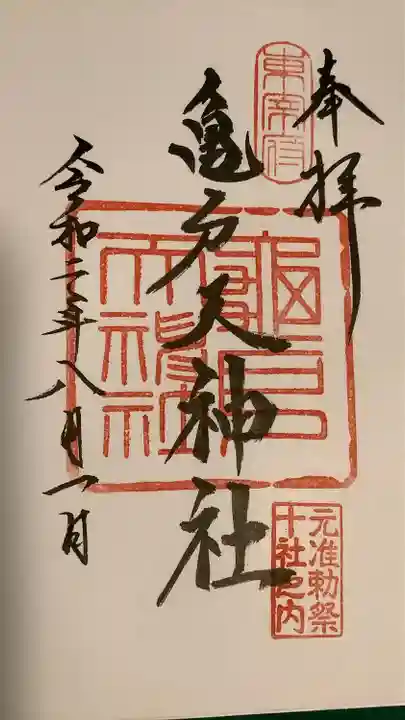 奉拝
東宰府
亀戸天神社
亀戸天神社
令和二年八月一日
元准勅祭
十社之内